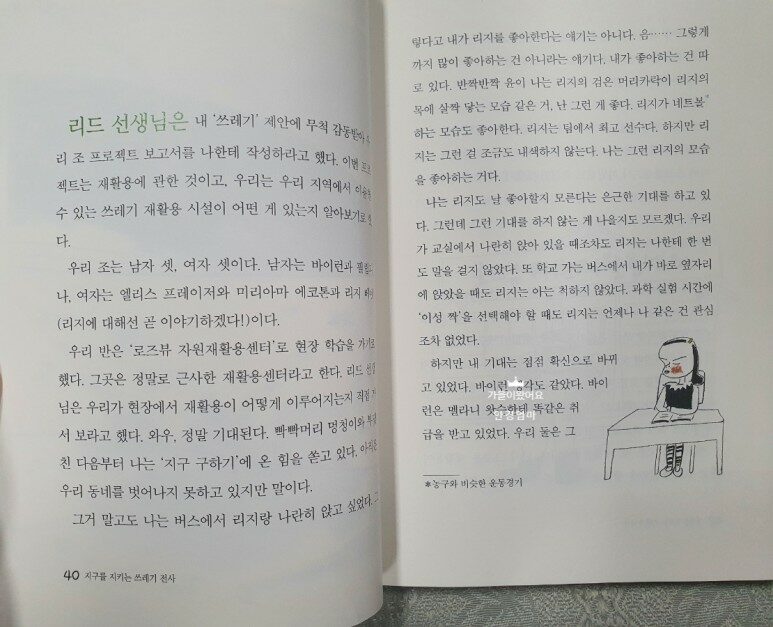 리드 선생님은 내 '쓰레기' 제안에 무척 감동받아
리 조 프로젝트 보고서를 나한테 작성하라고 했다. 이번 프로
젝트는 재활용에 관한 것이고, 우리는 우리 지역에서 이용할
수 있는 쓰레기 재활용 시설이 어떤 게 있는지 알아보기로
다.
우리 조는 남자 셋, 여자 셋이다. 남자는 바이런과
나, 여자는 엘리스 프레이저와 미리아마 에코톤과 리지
(리지에 대해선 곧 이야기하겠다!)이다.
우리 반은 '로즈뷰 자원재활용센터'로 현장 학습을 가기로
했다. 그곳은 정말로 근사한 재활용센터라고 한다. 리드 선생
님은 우리가 현장에서 재활용이 어떻게 이루어지는지 직접
서 보라고 했다. 와우, 정말 기대된다. 빡빡머리 멍청이와
친 다음부터 나는 '지구 구하기'에 온 힘을 쏟고 있다.
우리 동네를 벗어나지 못하고 있지만 말이다.
그거 말고도 나는 버스에서 리지랑 나란히 앉고 싶었다.
40 지구를 지키는 쓰레기 전사
렇다고 내가 리지를 좋아한다는 얘기는 아니다. 음…… 그렇게
까지 많이 좋아하는 건 아니라는 얘기다. 내가 좋아하는 건 따
로 있다. 반짝반짝 윤이 나는 리지의 검은 머리카락이 리지의
목에 살짝 닿는 모습 같은 거, 난 그런 게 좋다. 리지가 네트볼*
하는 모습도 좋아한다. 리지는 팀에서 최고 선수다. 하지만 리
지는 그런 걸 조금도 내색하지 않는다. 나는 그런 리지의 모습
을 좋아하는 거다.
나는 리지도 날 좋아할지 모른다는 은근한 기대를 하고 있
다. 그런데 그런 기대를 하지 않는 게 나을지도 모르겠다. 우리
가 교실에서 나란히 앉아 있을 때조차도 리지는 나한테 한 번
도 말을 걸지 않았다. 또 학교 가는 버스에서 내가 바로 옆자리
에 앉았을 때도 리지는 아는 척하지 않았다. 과학 실험 시간에
'이성 짝'을 선택해야 할 때도 리지는 언제나 나 같은 건 관심
조차 없었다.
하지만 내 기대는 점점 확신으로 바뀌
고 있었다. 바이런 생각도 같았다. 바이
런은 멜라니 왓슨한테 똑같은 취
급을 받고 있었다. 우리 둘은 그
*농구와 비슷한 운동경기
가을이왔어요